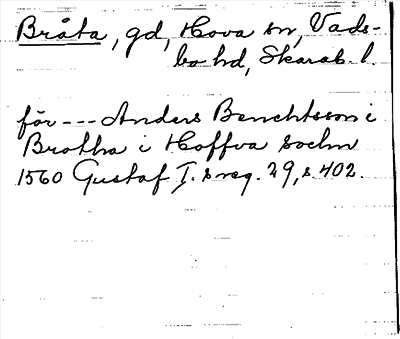 Bråta, gd, Hova sn, Vads-
bo hd, Skarab. l.
för --- Anders Benchtsson i
Brotha i Hoffva sochn
1560 Gustaf I:s reg. 29, s. 402.